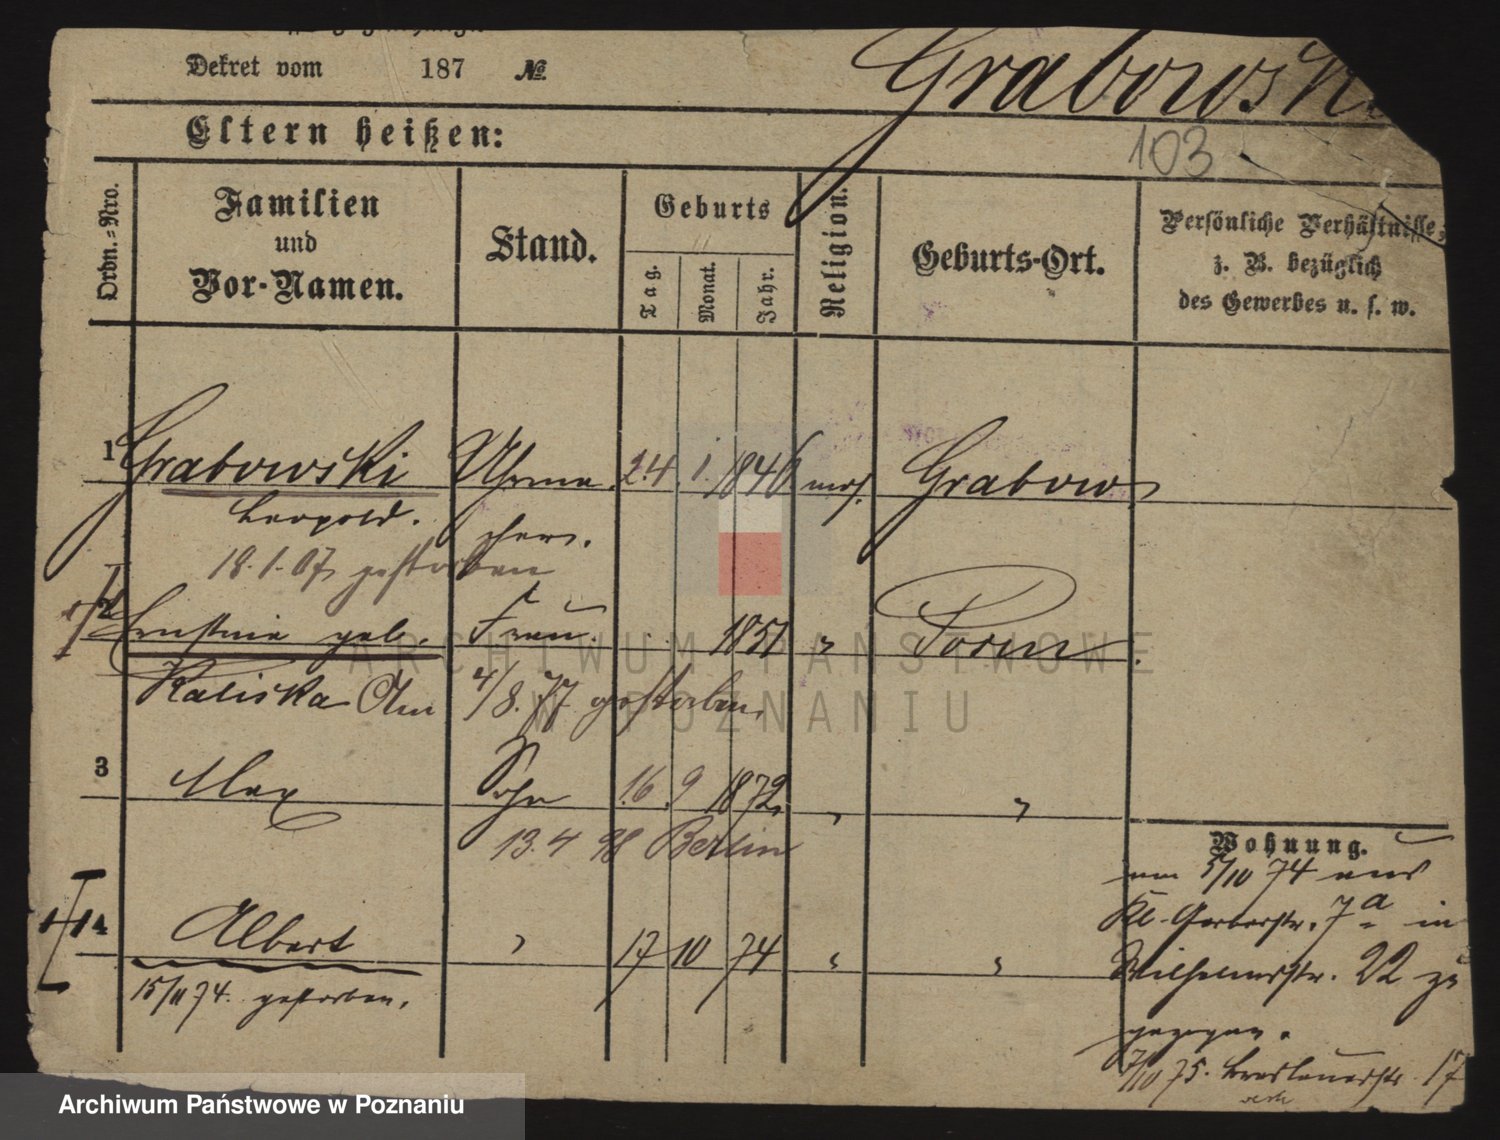 Dekret vom 187 №
Grabowski
Eltern heißen:
103
Ordn.=Nro.
Familien
und
Vor-Namen.
Stand.
Geburts
Tag.
Monat.
Jahr.
Religion.
Geburts-Ort.
Persönliche Verhältnisse,
z. B. bezüglich
des Gewerbes u. s. w.
1 Grabowski Uhrma 24. 1. 1846 mos. Grabow
Leopold. cher.
18.1.07 gestorben
2 Ernstine geb. Frau. 1851 " Posen
Kaliska Am 4/8. 77 gestorben.
3 Max Sohn 16 9 1872 " "
13.4 98 Berlin
4 Albert " 17 10 74 " "
15/11 74. gestorben.
Wohnung.
am 5/10 74 aus
Kl. Gerberstr. 7a in
Wilhelmsstr. 22 zu
gezogen.
7/10 75. Breslauerstr. 17
ARCHIWUM PAŃSTWOWE
W POZNANIU
Archiwum Państwowe w Poznaniu